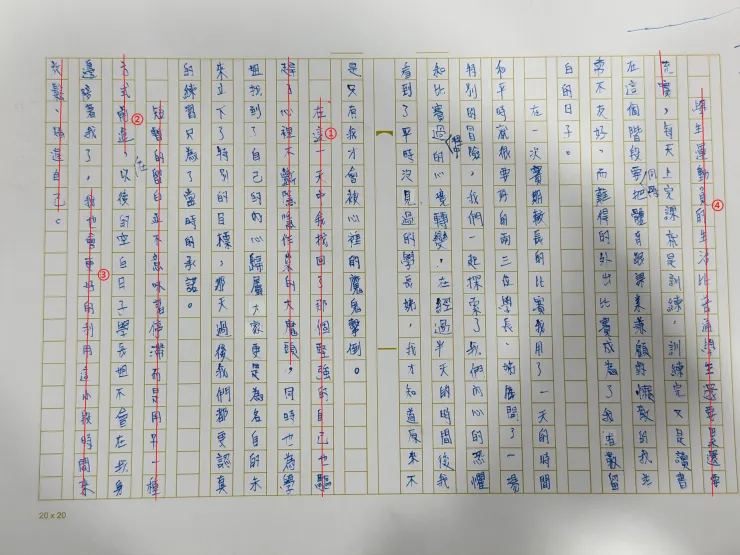 學生運動員的生活比普通學生還要累還要
充實,每天上完課就是訓練,訓練完又是讀書
在這個階段要把體育跟課業兼顧對
常不友好,而難得的外出比賽成為了我有數留
白的日子。
在一次賽期較長的比賽我用了一天的時間
和平時就很要好的兩三位學長、姊展開了一場
特別的冒險,我們一起探索了我們內心的恐懼
和比賽過程中的心境轉變,在經過半天的時間後我
看到了平時沒見過的學長姊,我才知道原來不
是只有我才會被心裡的魔鬼擊倒。
在這一天中我找回了那個堅強的自己也驅
除了心裡不斷 作祟的大魔頭,同時也為學
姐找到了自己的的心歸屬大家更是為各自的未
來立下了特別的目標,那天過後我們都更認真
的練習只為了當時的承諾。
短暫的留白並不意味著停滯而是用另一種
方式前進,在以後的空白日子學長姐不會在我身
邊陪著我了,我也會更好的利用這小段時間來
放鬆、認這自己。
①
②
③
④
20 x 20